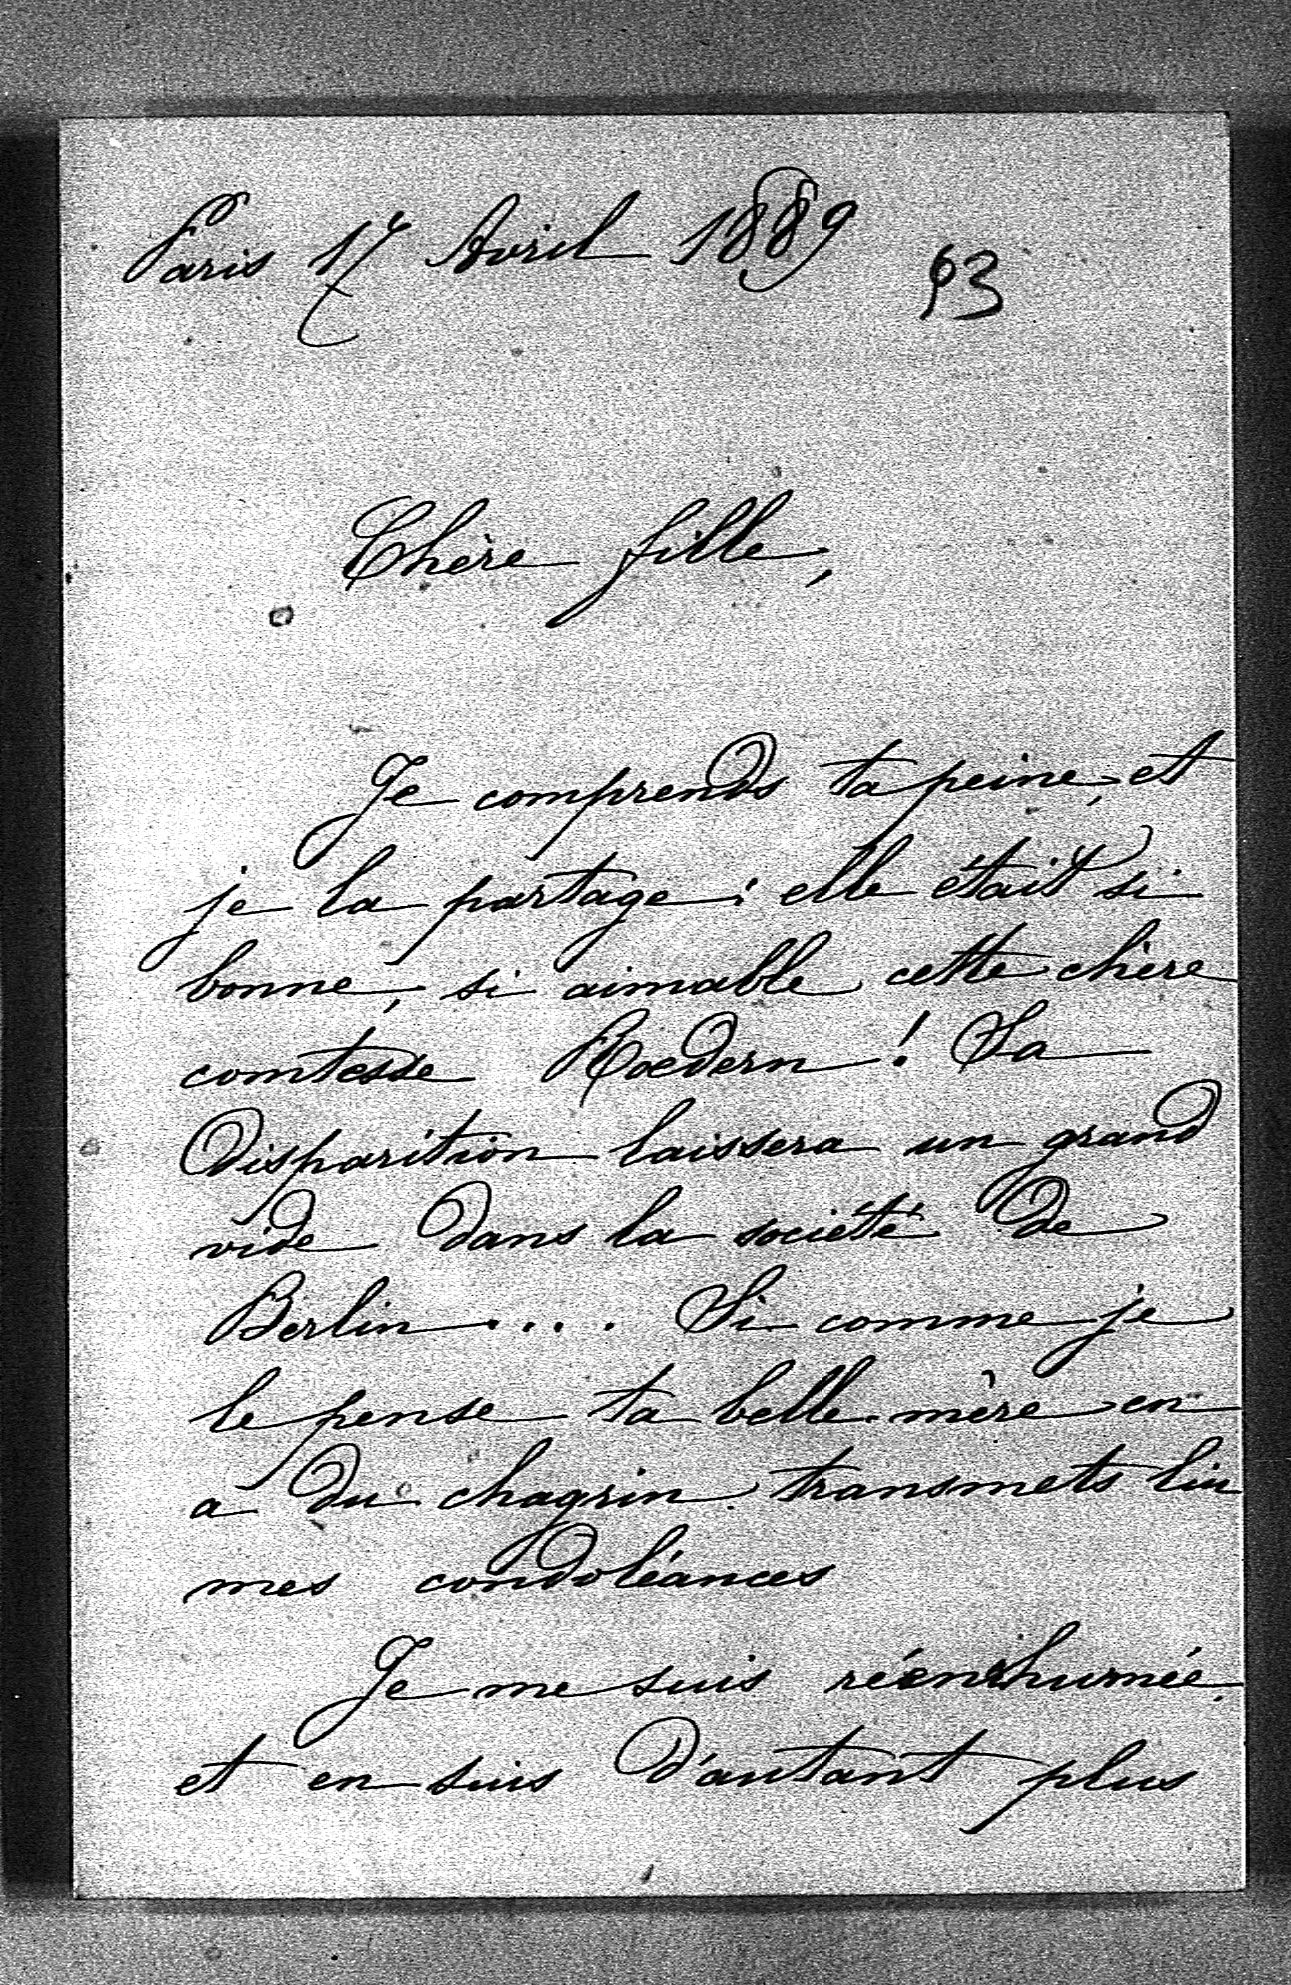 Paris 17 Avril 1889
63
Chère fille,
Je comprends ta peine, et
je la partage; elle était si
bonne, si aimable cette chère
comtesse Roedern! Sa
disparition laissera un grand
vide dans la société de
Berlin.... Si comme je
le pense ta belle-mère en
a du chagrin transmets lui
mes condoléances
Je me suis réenrhumée
et en suis d'autant plus